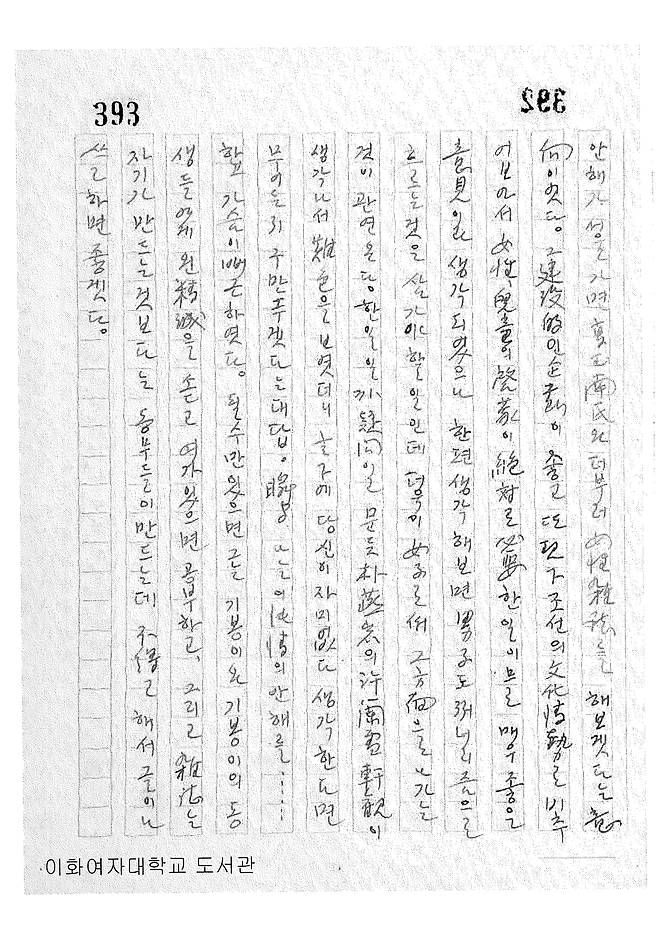 393
392
안해가 성호가면 南氏와 더부러 女性雜誌를 해보겟다는 意
向이엿다. 그 建設的인 이 좋고 또 현下 조선의 文化情勢로 비추
어보아서 女性, 兒童의 啓蒙이 絶対로 必要한 일이므로 매우 좋은
意見이라 생각되엿으나 한편 생각해보면 男子도
흐르는 것을 삼가야 할 일인데 더욱이 女子로써 그 方面을 나가는
것이 관연 온당한 일일까 疑問일 문득 朴燕岩의 許蘭雪軒觀이
생각나서 難色을 보엿더니 글구에 당신이 자미없다 생각한다면
무어든지 구만두겟다는 대답. 나는 의 안해를……
햇고 가슴이 뻐근하엿다. 될수만 있으면 그는 기봉이와 기봉이의 동
생들에게 왼 精誠을 쏟고 여가 있으면 공부하고, 그리고 雜誌는
자기가 만드는 것보다는 동무들이 만드는데 不得已 해서 글이나
쓰고 하면 좋겟다.
이화여자대학교 도서관